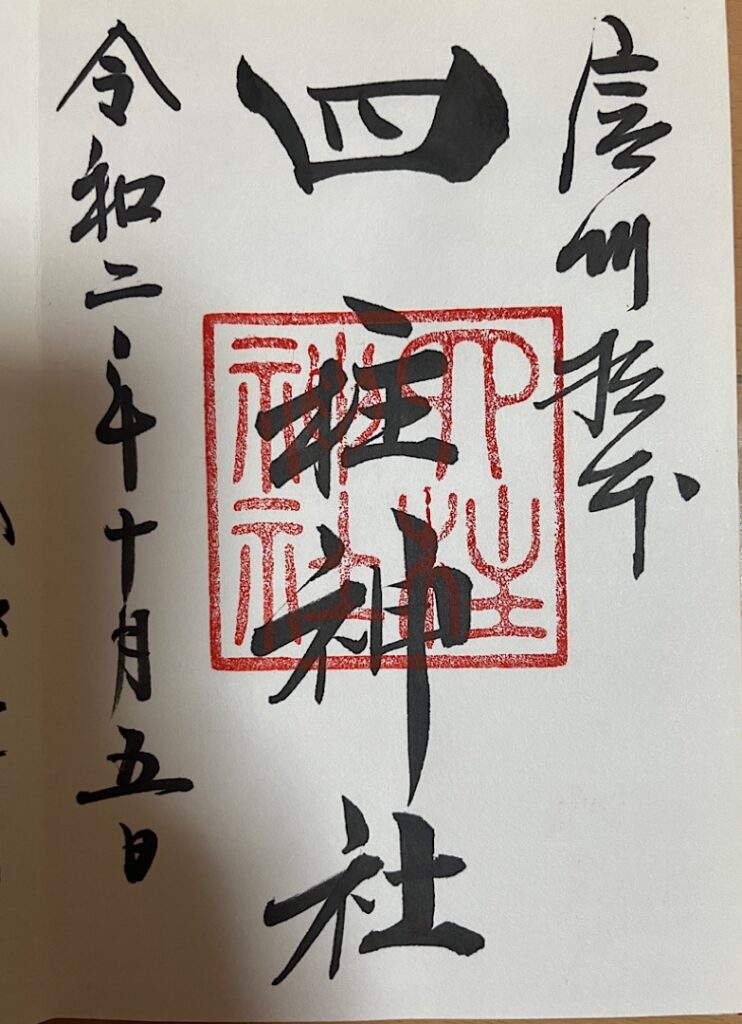 信州松本
四柱神社
四柱神社
令和二年十月五日